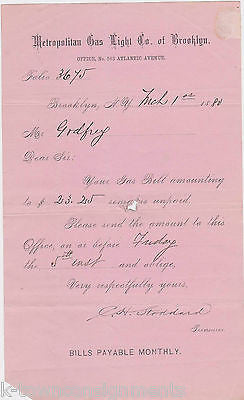 Metropolitan Gas Light Co. of Brooklyn.
OFFICE, No. 563 ATLANTIC AVENUE.
Folio 3675
Brooklyn, N.Y. Mch 1st 1880
Mr Godfrey
Dear Sir:
Your Gas Bill amounting
to $ 23.25 remains unpaid.
Please send the amount to this
Office, on or before Friday
the 5th inst and oblige,
Very respectfully yours,
C.H. Stoddard
Treasurer.
BILLS PAYABLE MONTHLY.